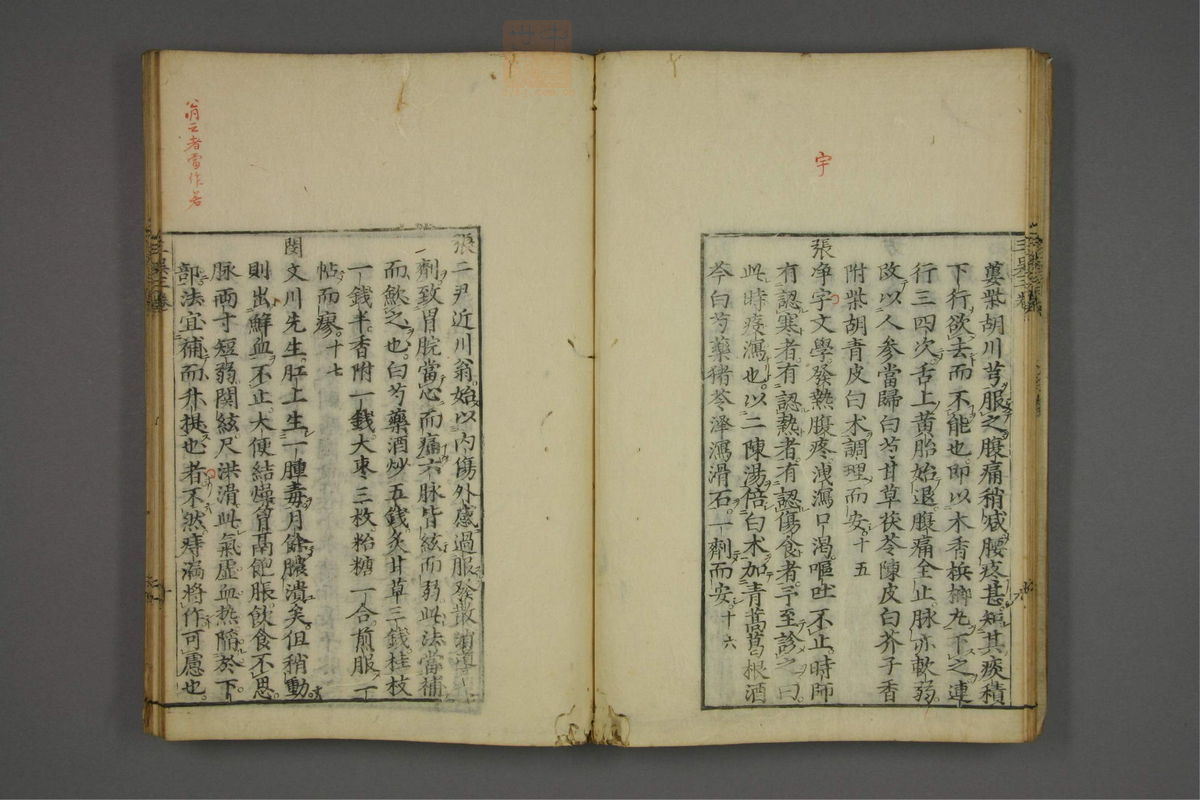 宇
蔞柴胡川芎服之腹痛稍减腰疼甚短其痰積
下行欲去而不能也即以木香梹榔丸下之連
行三四次舌上黄胎始退腹痛全止脉亦軟弱
改以人參當歸白芍甘草茯苓陳皮白芥子香
附柴胡青皮白术調理而安十五
張净字文學發熱腹疼洩瀉口渴嘔吐不止時師
有認寒者有認熱者有認傷食者予至診之曰
此時疫瀉也以二陳湯倍白术加青蒿葛根酒
芩白芍藥猪苓澤瀉滑石一劑而安十六
翁云者當作若
張二尹近川翁始以内傷外感過服發散消導之
劑致胃脘當心而痛六脉皆絃而弱此法當補
而歛之也白芍藥酒炒五錢炙甘草三錢桂枝
一錢半香附一錢大枣三枚粘糖一合煎服一
帖而瘳十七
閔文川先生肛上生一腫毒月餘膿潰矣但稍動
則出觧血不止大便結燥胷鬲飽脹飲食不思
脉兩寸短弱関絃尺洪滑此氣虚血热陥於下
部法宜補而升提也者不然痔漏將作可慮也